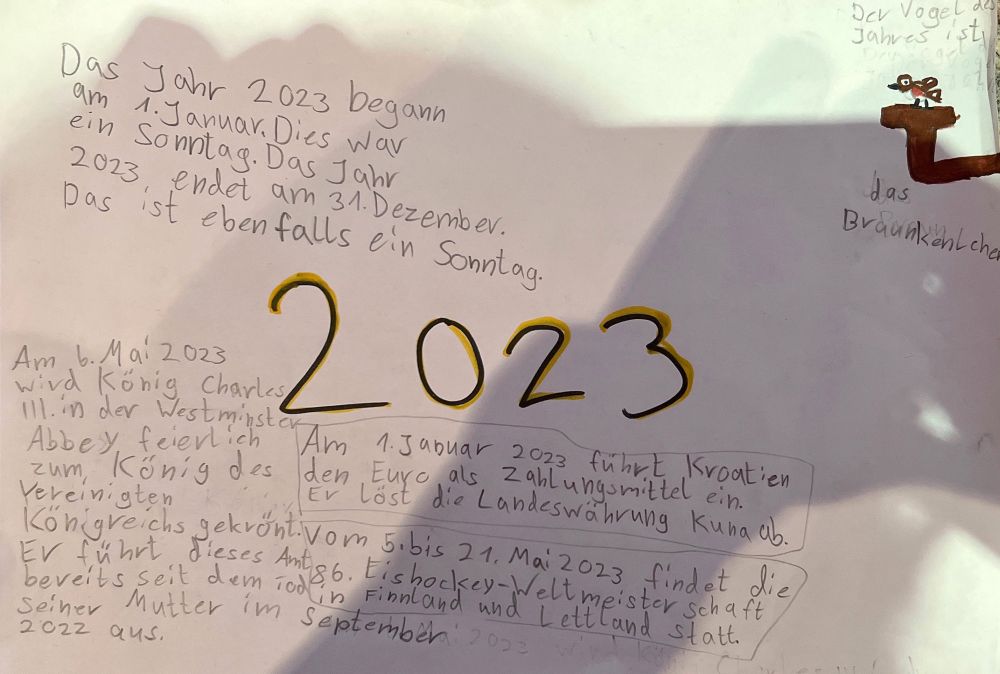 Das Jahr 2023 begann
am 1. Januar. Dies war
ein Sonntag. Das Jahr
2023 endet am 31. Dezember.
Das ist ebenfalls ein Sonntag.
Der Vogel des
Jahres ist
das
Braunkehlchen
2023
Am 6. Mai 2023
wird König Charles
III. in der Westminster
Abbey feierlich
zum König des
Vereinigten
Königreichs gekrönt.
Er führt dieses Amt
bereits seit dem Tod
seiner Mutter im September
2022 aus.
Am 1. Januar 2023 führt Kroatien
den Euro als Zahlungsmittel ein.
Er löst die Landeswährung Kuna ab.
Vom 5. bis 21. Mai 2023 findet die
86. Eishockey-Weltmeisterschaft
in Finnland und Lettland statt.
Mai 2023 wird